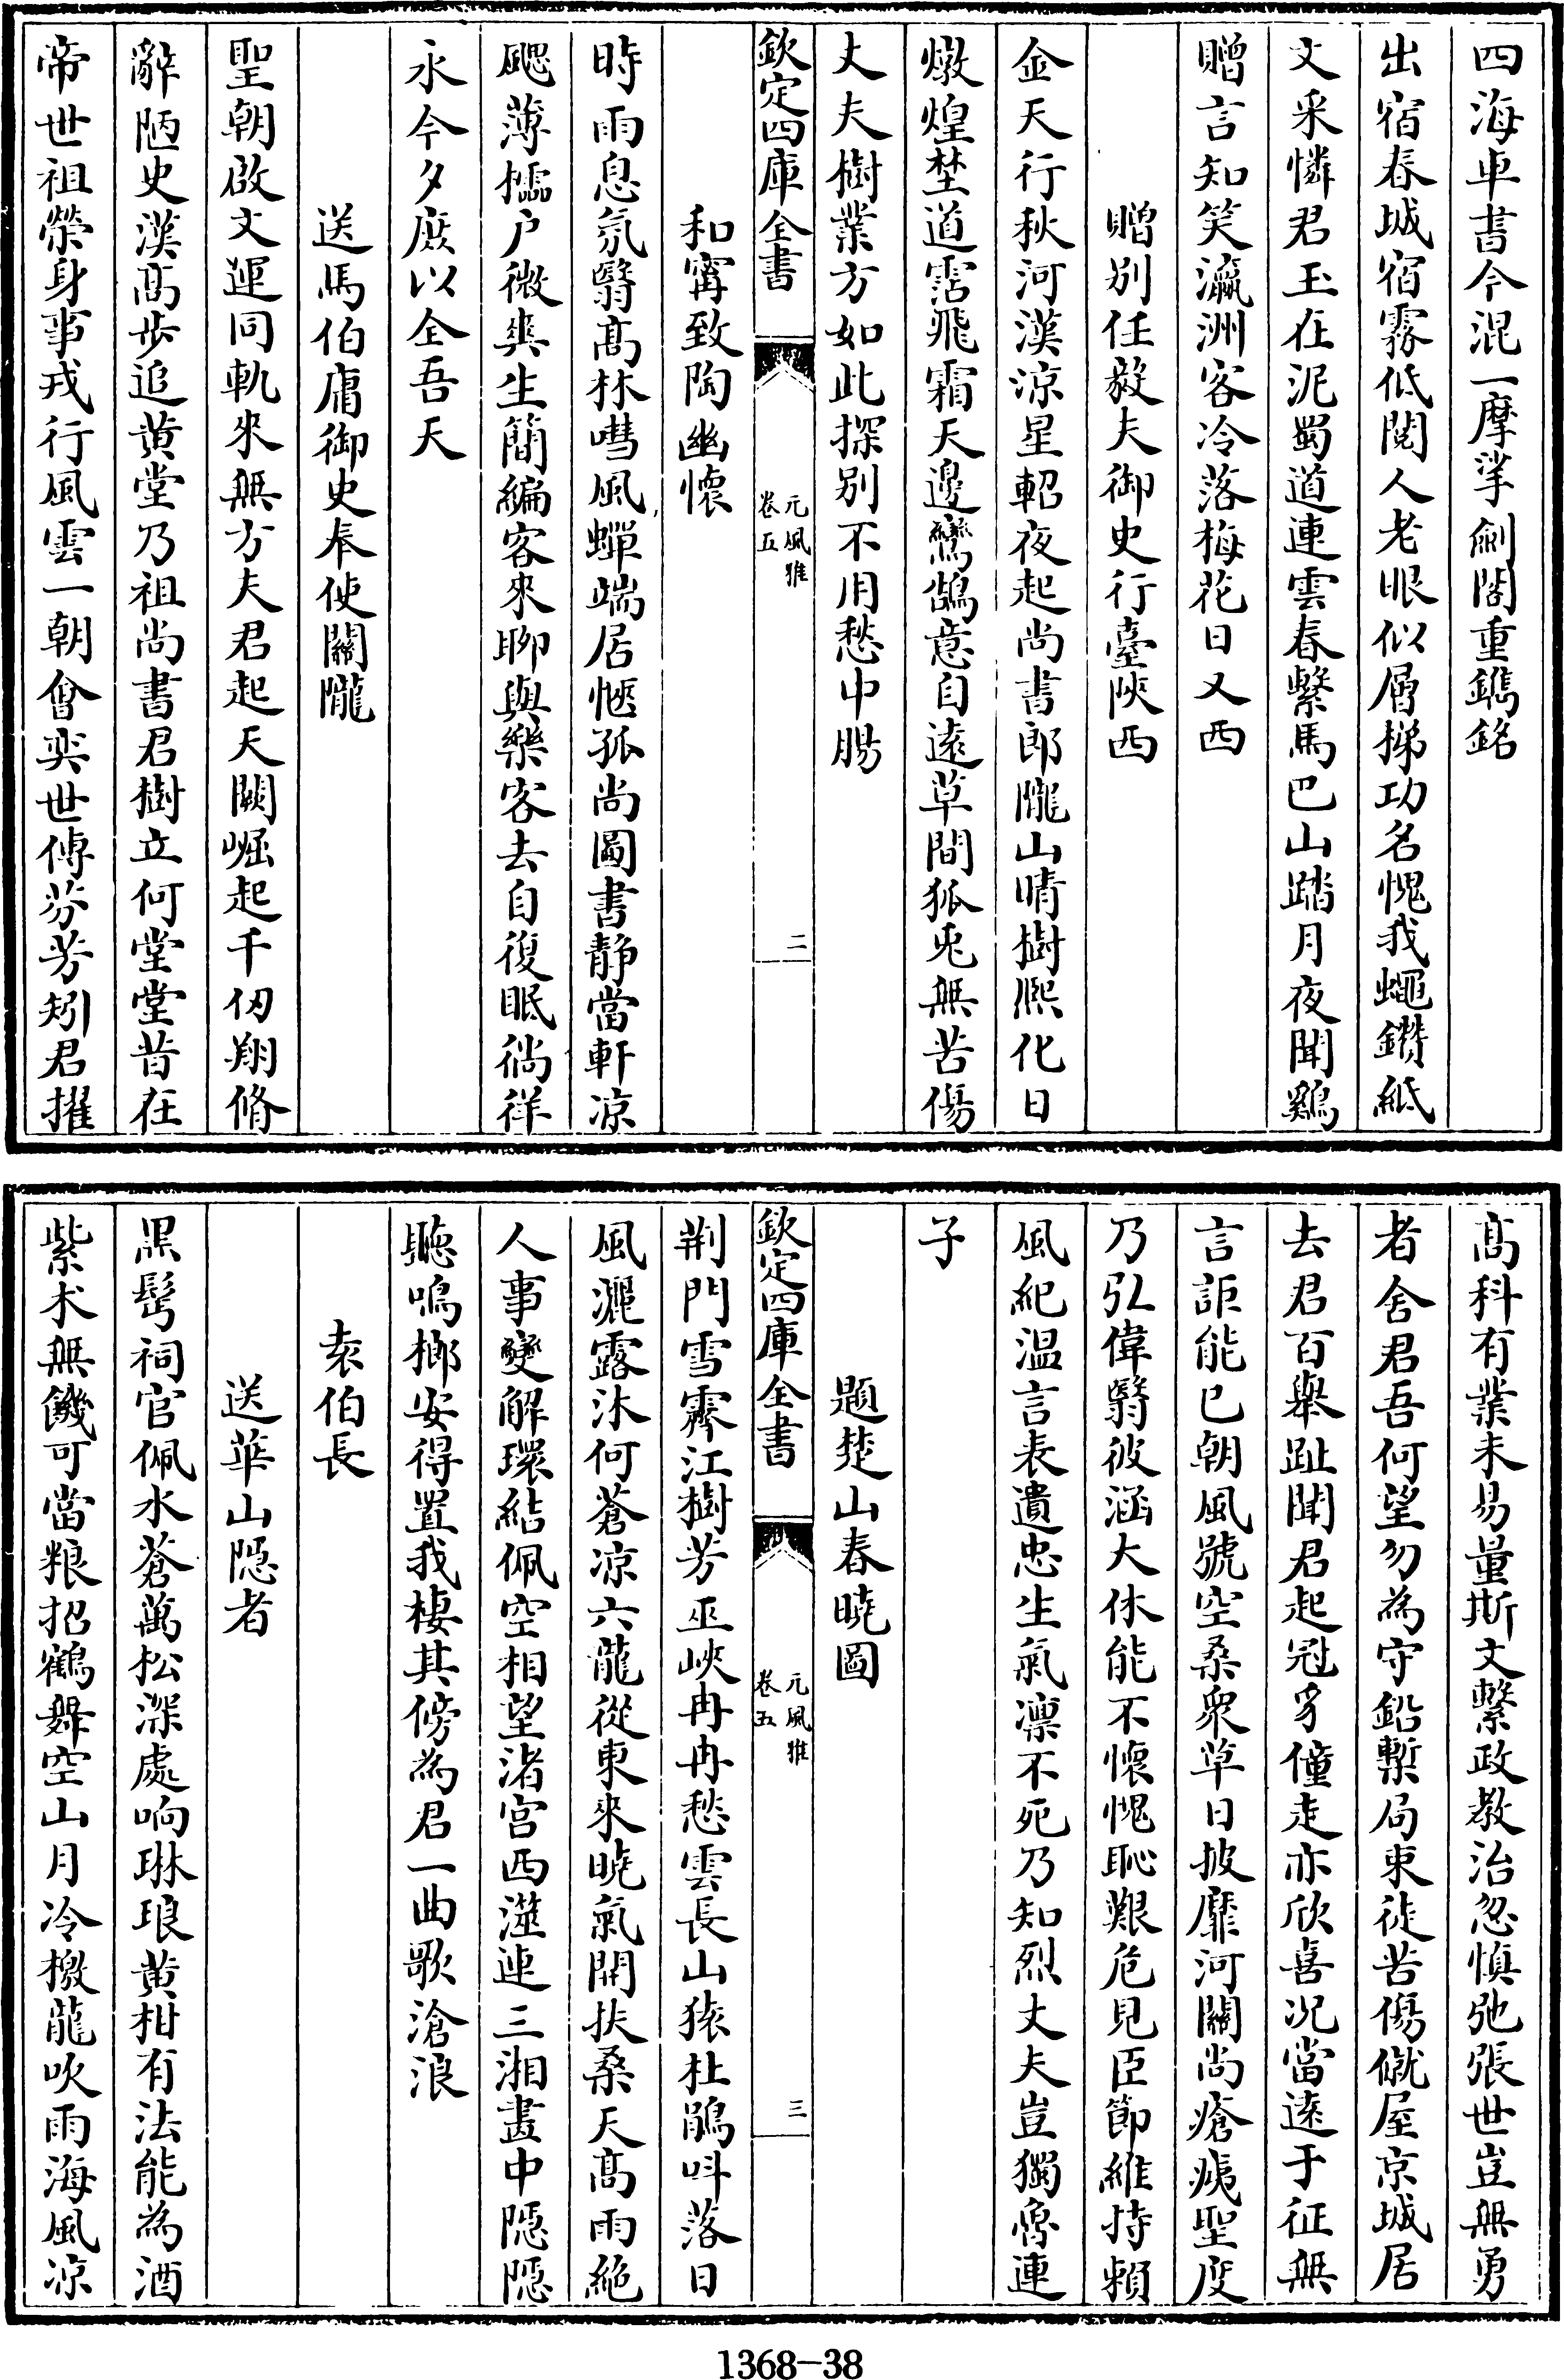 四海車書今混一摩挲劍閣重鐫銘
出宿春城宿霧低閱人老眼似層梯功名愧我蠅鑽紙
文采憐君玉在泥蜀道連雲春繫馬巴山踏月夜聞鷄
贈言知笑瀛洲客冷落梅花日又西
贈别任毅夫御史行臺陜西
金天行秋河漢涼星軺夜起尚書郎隴山晴樹熈化日
燉煌埜道霑飛霜天邊鸞鵠意自逺草間狐兎無苦傷
丈夫樹業方如此探别不用愁中腸
欽定四庫全書
元風雅
卷五
二
和甯致陶幽懷
時雨息氛翳髙林嘒風蟬端居愜孤尚圖書靜當軒凉
颸薄櫺户微爽生簡編客來聊與樂客去自復眠徜徉
永今夕庶以全吾天
送馬伯庸御史奉使關隴
聖朝啟文運同軌來無方夫君起天闕崛起千仭翔脩
辭陋史漢髙步追黄堂乃祖尚書君樹立何堂堂昔在
帝世祖榮身事戎行風雲一朝會奕世傳芬芳矧君擢
髙科有業未易量斯文繫政教治忽慎弛張世豈無勇
者舍君吾何望勿為守鉛槧局束徒苦傷僦屋京城居
去君百舉趾聞君起冠豸僮走亦欣喜况當逺于征無
言詎能已朝風號空桑衆草日披靡河關尚瘡痍聖度
乃弘偉翳彼涵大休能不懷愧恥艱危見臣節維持賴
風紀温言表遺忠生氣凛不死乃知烈丈夫豈獨魯連
子
題楚山春曉圖
欽定四庫全書
元風雅
卷五
三
荆門雪霽江樹芳巫峽冉冉愁雲長山猿杜鵑呌落日
風灑露沐何蒼凉六龍從東來曉氣開扶桑天髙雨絶
人事變解環結佩空相望渚宫西澨連三湘畫中隠隠
聽鳴榔安得置我棲其傍為君一曲歌滄浪
袁伯長
送華山隠者
黒髩祠官佩水蒼萬松深處响琳琅黄柑有法能為酒
紫术無饑可當粮招鶴舞空山月冷檄龍吹雨海風凉
1368-38